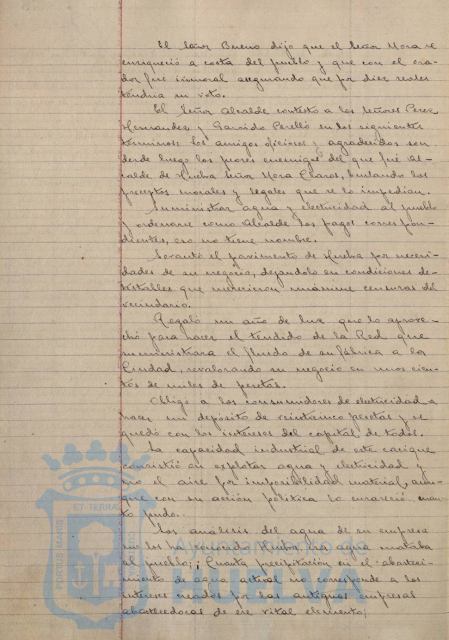 El Señor Bueno dijo que el Señor Mora se
enriqueció a costa del pueblo y que con el ora-
dor fué inmoral asegurando que por diez reales
tendría su voto.
El Señor Alcalde contestó a los Señores Perez
Hernandez y Garrido Perelló en los siguientes
terminos: los amigos oficiosos y agradecidos son
desde luego los peores enemigos del que fué Al-
calde de Huelva Señor Mora Claros, burlando los
preceptos morales y legales que se lo impedian.
Suministrar agua y electricidad al pueblo
y ordenarse como Alcalde los pagos correspon-
dientes, eso no tiene nombre.
Levantó el pavimento de Huelva por necesi-
dades de su negocio, dejandolo en condiciones de-
testables que merecieron unánime censura del
vecindario.
Regaló un año de luz que lo aprove-
chó para hacer el tendido de la Red que
suministrara el fluido de su fábrica a la
Ciudad, revalorando su negocio en unos cien-
tos de miles de pesetas.
Obligó a los consumidores de electricidad a
hacer un depósito de veinticinco pesetas y se
quedó con los intereses del capital de todos.
La capacidad industrial de este cacique
consistió en explotar agua y electricidad y
no el aire por imposibilidad material, aun-
que con su acción política lo enrareció cuan-
to pudo.
Los análisis del agua de su empresa
no los ha conocido Huelva, esa agua mataba
al pueblo; ¡Cuanta precipitación en el abasteci-
miento de agua actual no corresponde a los
intereses creados por las antiguas empresas
abastecedoras de ese vital elemento;
PORTUS MARIS
ET TERRAE
Ayuntamiento de
HUELVA